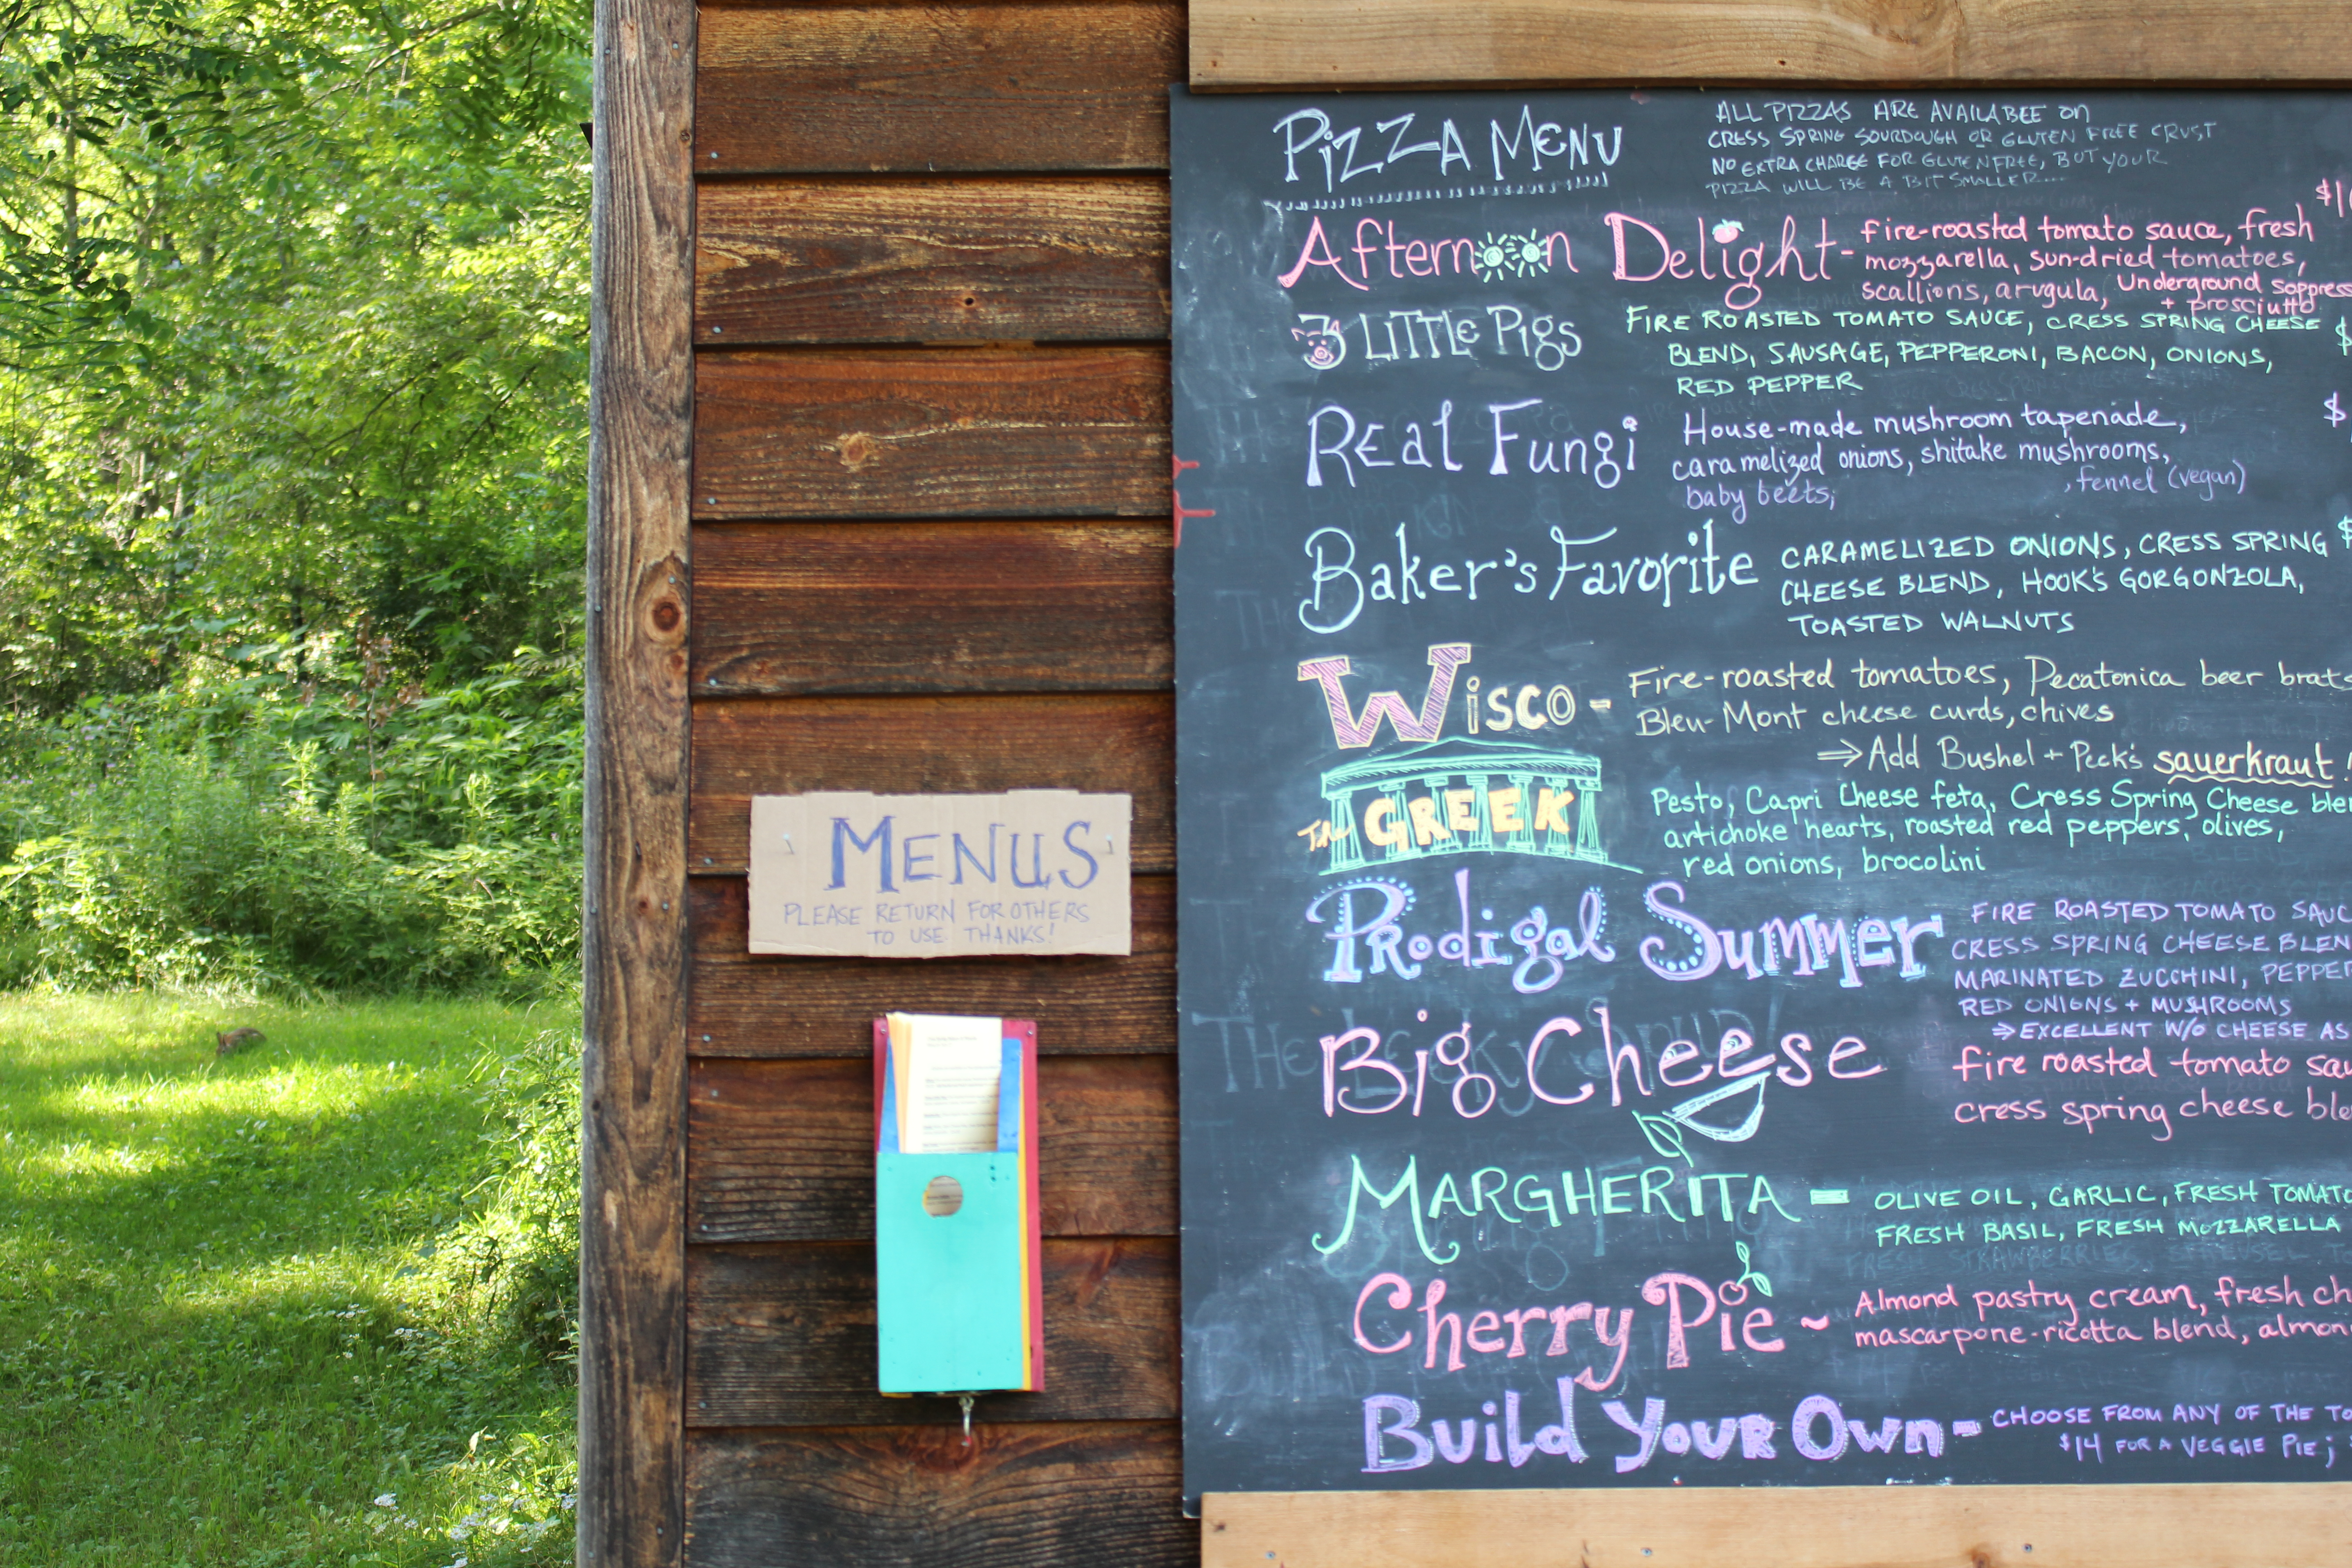 MENUS
PLEASE RETURN FOR OTHERS
TO USE THANKS!
PIZZA MENU
ALL PIZZAS ARE AVAILABEE ON
CRESS SPRING SOURDOUGH OR GLUTEN FREE CRUST
NO EXTRA CHARGE FOR GLUTEN FREE, BUT YOUR
PIZZA WILL BE A BIT SMALLER....
Afternoon Delight- fire-roasted tomato sauce, fresh
mozzarella, sun-dried tomatoes,
scallions, arugula, Underground
+ prosciutto
3 LITTLE PIGS FIRE ROASTED TOMATO SAUCE, CRESS SPRING CHEESE
BLEND, SAUSAGE, PEPPERONI, BACON, ONIONS,
RED PEPPER
REAL FUNGi House-made mushroom tapenade, $
caramelized onions, shitake mushrooms,
baby beets; , fennel (vegan)
Baker's Favorite CARAMELIZED ONIONS, CRESS SPRING $
CHEESE BLEND, HOOK'S GORGONZOLA,
TOASTED WALNUTS
WISCO - Fire-roasted tomatoes, Pecatonica beer brats
Bleu-Mont cheese curds, chives
⇒ Add Bushel + Peck's sauerkraut!
The GREEK Pesto, Capri Cheese feta, Cress Spring Cheese
artichoke hearts, roasted red peppers, olives,
red onions, brocolini
Prodigal Summer FIRE ROASTED TOMATO
CRESS SPRING CHEESE
MARINATED ZUCCHINI,
RED ONIONS + MUSHROOMS
⇒ EXCELLENT W/O CHEESE AS
Big Cheese fire roasted tomato
cress spring cheese
MARGHERITA - OLIVE OIL, GARLIC, FRESH
FRESH BASIL, FRESH MOZZARELLA
Cherry Pie ~ Almond pastry cream, fresh
mascarpone-ricotta blend,
Build Your Own - CHOOSE FROM ANY OF THE
$14 FOR A VEGGIE PIE;